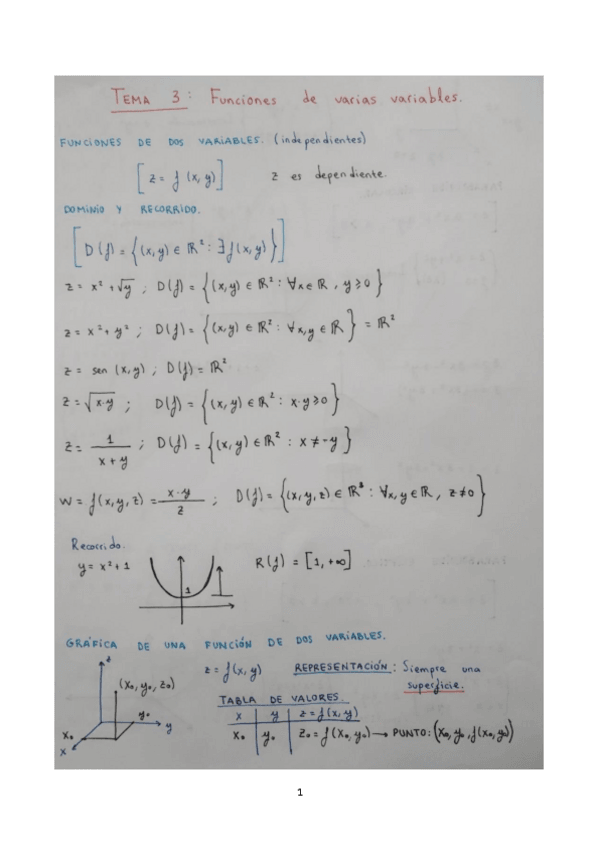 TEMA 3: Funciones de varias variables.
FUNCIONES DE DOS VARIABLES. (independientes)
[z = f (x, y)] z es dependiente.
DOMINIO Y RECORRIDO.
[D(f) = {(x,y) ∈ ℝ² : ∃ f(x,y)}]
z = x² + √y ; D(f) = {(x,y) ∈ ℝ² : ∀x ∈ ℝ, y ≥ 0}
z = x² + y² ; D(f) = {(x,y) ∈ ℝ² : ∀x,y ∈ ℝ} = ℝ²
z = sen (x,y) ; D(f) = ℝ²
z = √x·y ; D(f) = {(x,y) ∈ ℝ² : x·y ≥ 0}
z = 1/(x + y) ; D(f) = {(x,y) ∈ ℝ² : x ≠ -y}
W = f(x,y,z) = x·y/z ; D(f) = {(x,y,z) ∈ ℝ³ : ∀x,y ∈ ℝ, z ≠ 0}
Recorrido.
y = x² + 1 1 R(f) = [1, +∞]
GRÁFICA DE UNA FUNCIÓN DE DOS VARIABLES.
z z = f(x,y) REPRESENTACIÓN: Siempre una
superficie.
(x₀, y₀, z₀)
TABLA DE VALORES.
x y z = f(x,y)
x₀ y₀ z₀ = f(x₀, y₀) → PUNTO: (x₀, y₀, f(x₀, y₀))
y₀ y
x₀
x
1